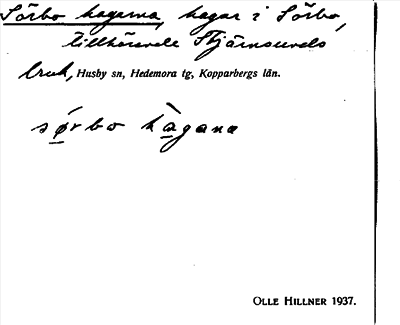 Sörbo hagarna, hagar i Sörbo,
tillhörande Stjärnsunds
bruk, Husby sn, Hedemora tg, Kopparbergs län.
sørbo hàgana
OLLE HILLNER 1937.